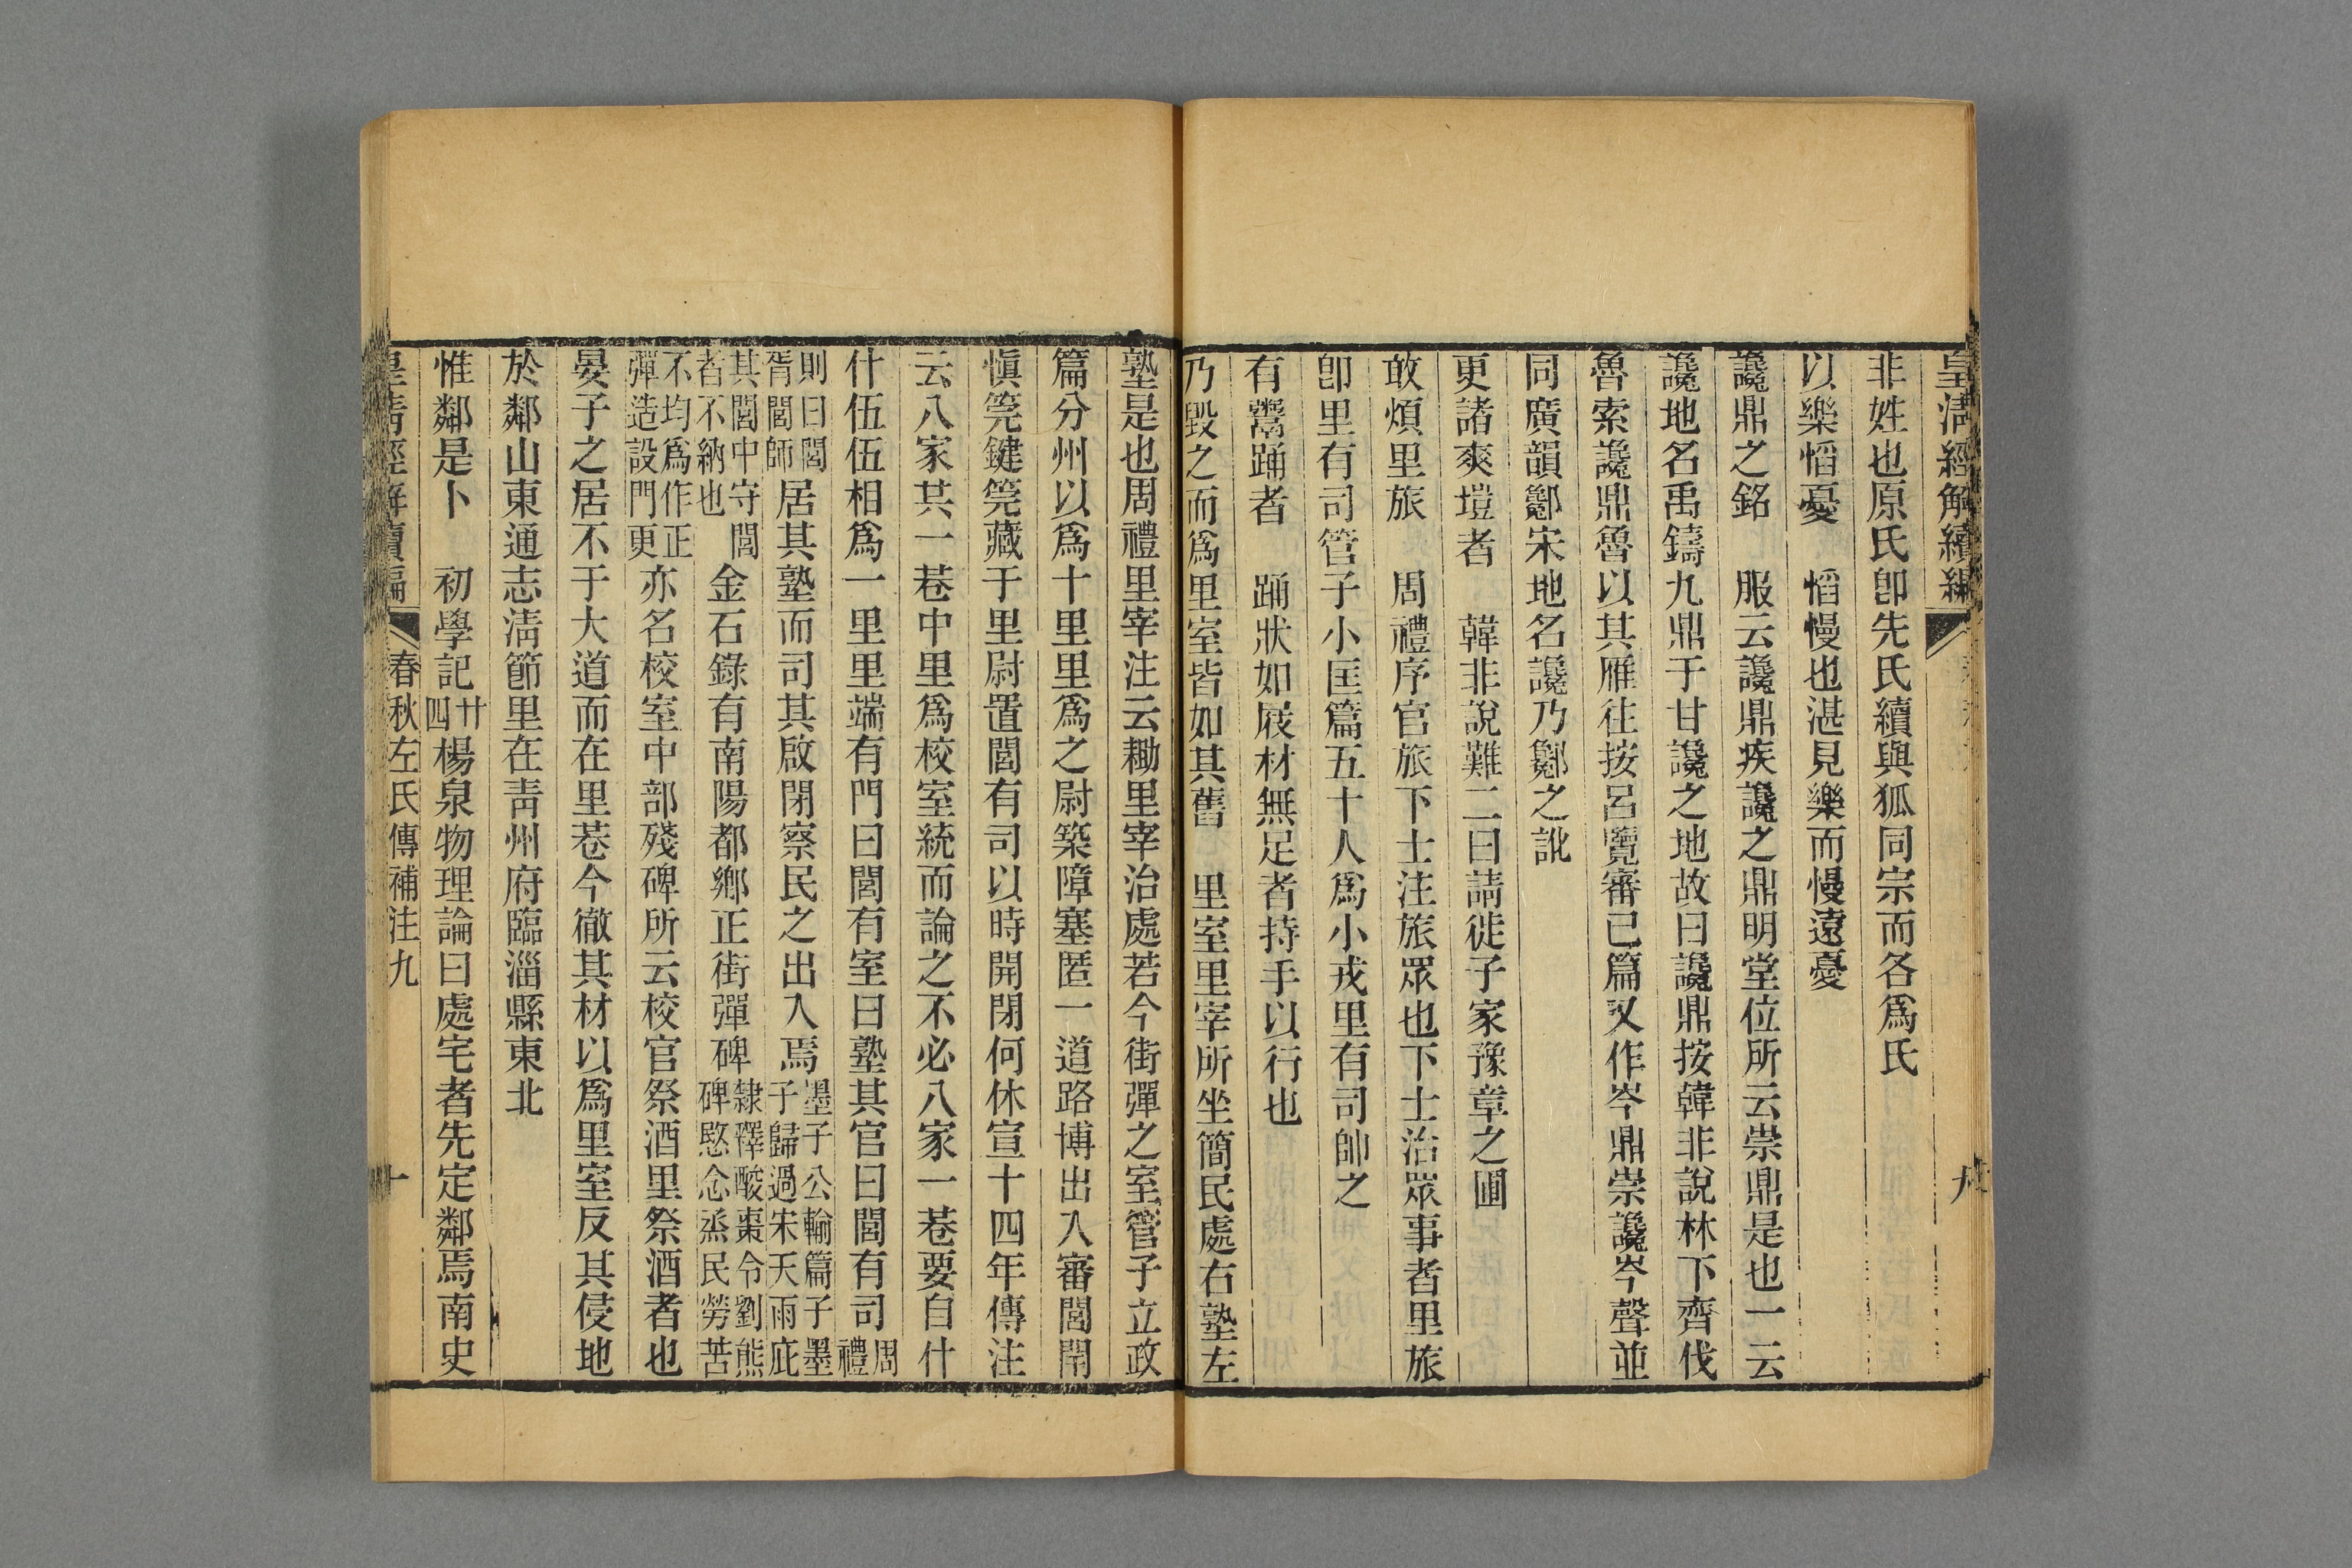 皇淸經解續編
九
非姓也原氏卽先氏續與狐同宗而各爲氏
以樂慆憂　慆慢也湛見樂而慢遠憂
讒鼎之銘　服云讒鼎疾讒之鼎明堂位所云崇鼎是也一云
讒地名禹鑄九鼎于甘讒之地故曰讒鼎按韓非說林下齊伐
魯索讒鼎魯以其雁往按呂覽審已篇又作岑鼎崇讒岑聲並
同廣韻酁宋地名讒乃酁之訛
更諸爽塏者　韓非說難二曰請徙子家豫章之圃
敢煩里旅　周禮序官旅下士注旅眾也下士治眾事者里旅
卽里有司管子小匡篇五十人爲小戎里有司帥之
有鬻踊者　踊狀如屐材無足者持手以行也
乃毀之而爲里室皆如其舊　里室里宰所坐簡民處右塾左
塾是也周禮里宰注云耡里宰治處若今街彈之室管子立政
篇分州以爲十里里爲之尉築障塞匿一道路博出入審閭閈
愼筦鍵筦藏于里尉置閭有司以時開閉何休宣十四年傳注
云八家共一巷中里爲校室統而論之不必八家一巷要自什
什伍伍相爲一里里端有門曰閭有室曰塾其官曰閭有司周禮
則曰閭胥閭師居其塾而司其啟閉察民之出入焉墨子公輸篇子墨子歸過宋天雨庇
其閭中守閭者不納也金石錄有南陽都鄕正街彈碑隸釋酸棗令劉熊碑愍念烝民勞苦
不均爲作正彈造設門更亦名校室中部殘碑所云校官祭酒里祭酒者也
晏子之居不于大道而在里巷今徹其材以爲里室反其侵地
於鄰山東通志淸節里在靑州府臨淄縣東北
惟鄰是卜　初學記廿四楊泉物理論曰處宅者先定鄰焉南史
皇淸經解續編　春秋左氏傳補注九　十